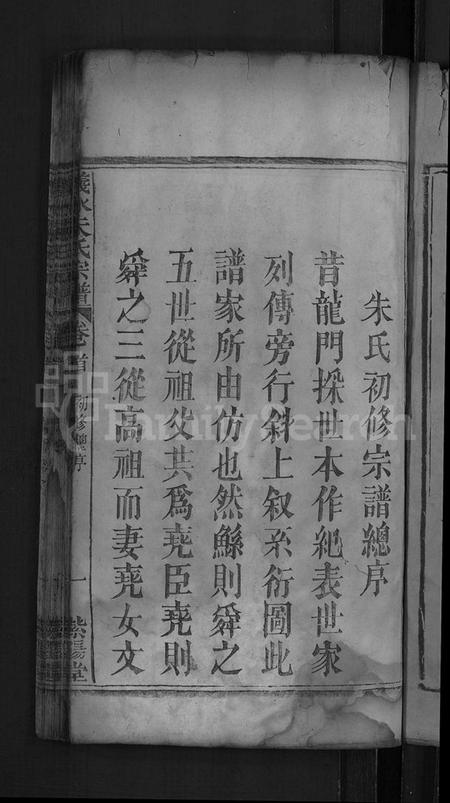 朱氏初修宗譜總序
昔龍門採世本作紀表世家
列傳旁行斜上叙系衍圖此
譜家所由仿也然鯀則舜之
五世從祖父其爲堯臣堯則
舜之三從高祖而妻堯女文
朱氏宗譜 卷首 初修總序 一 紫陽堂
FamilySearch